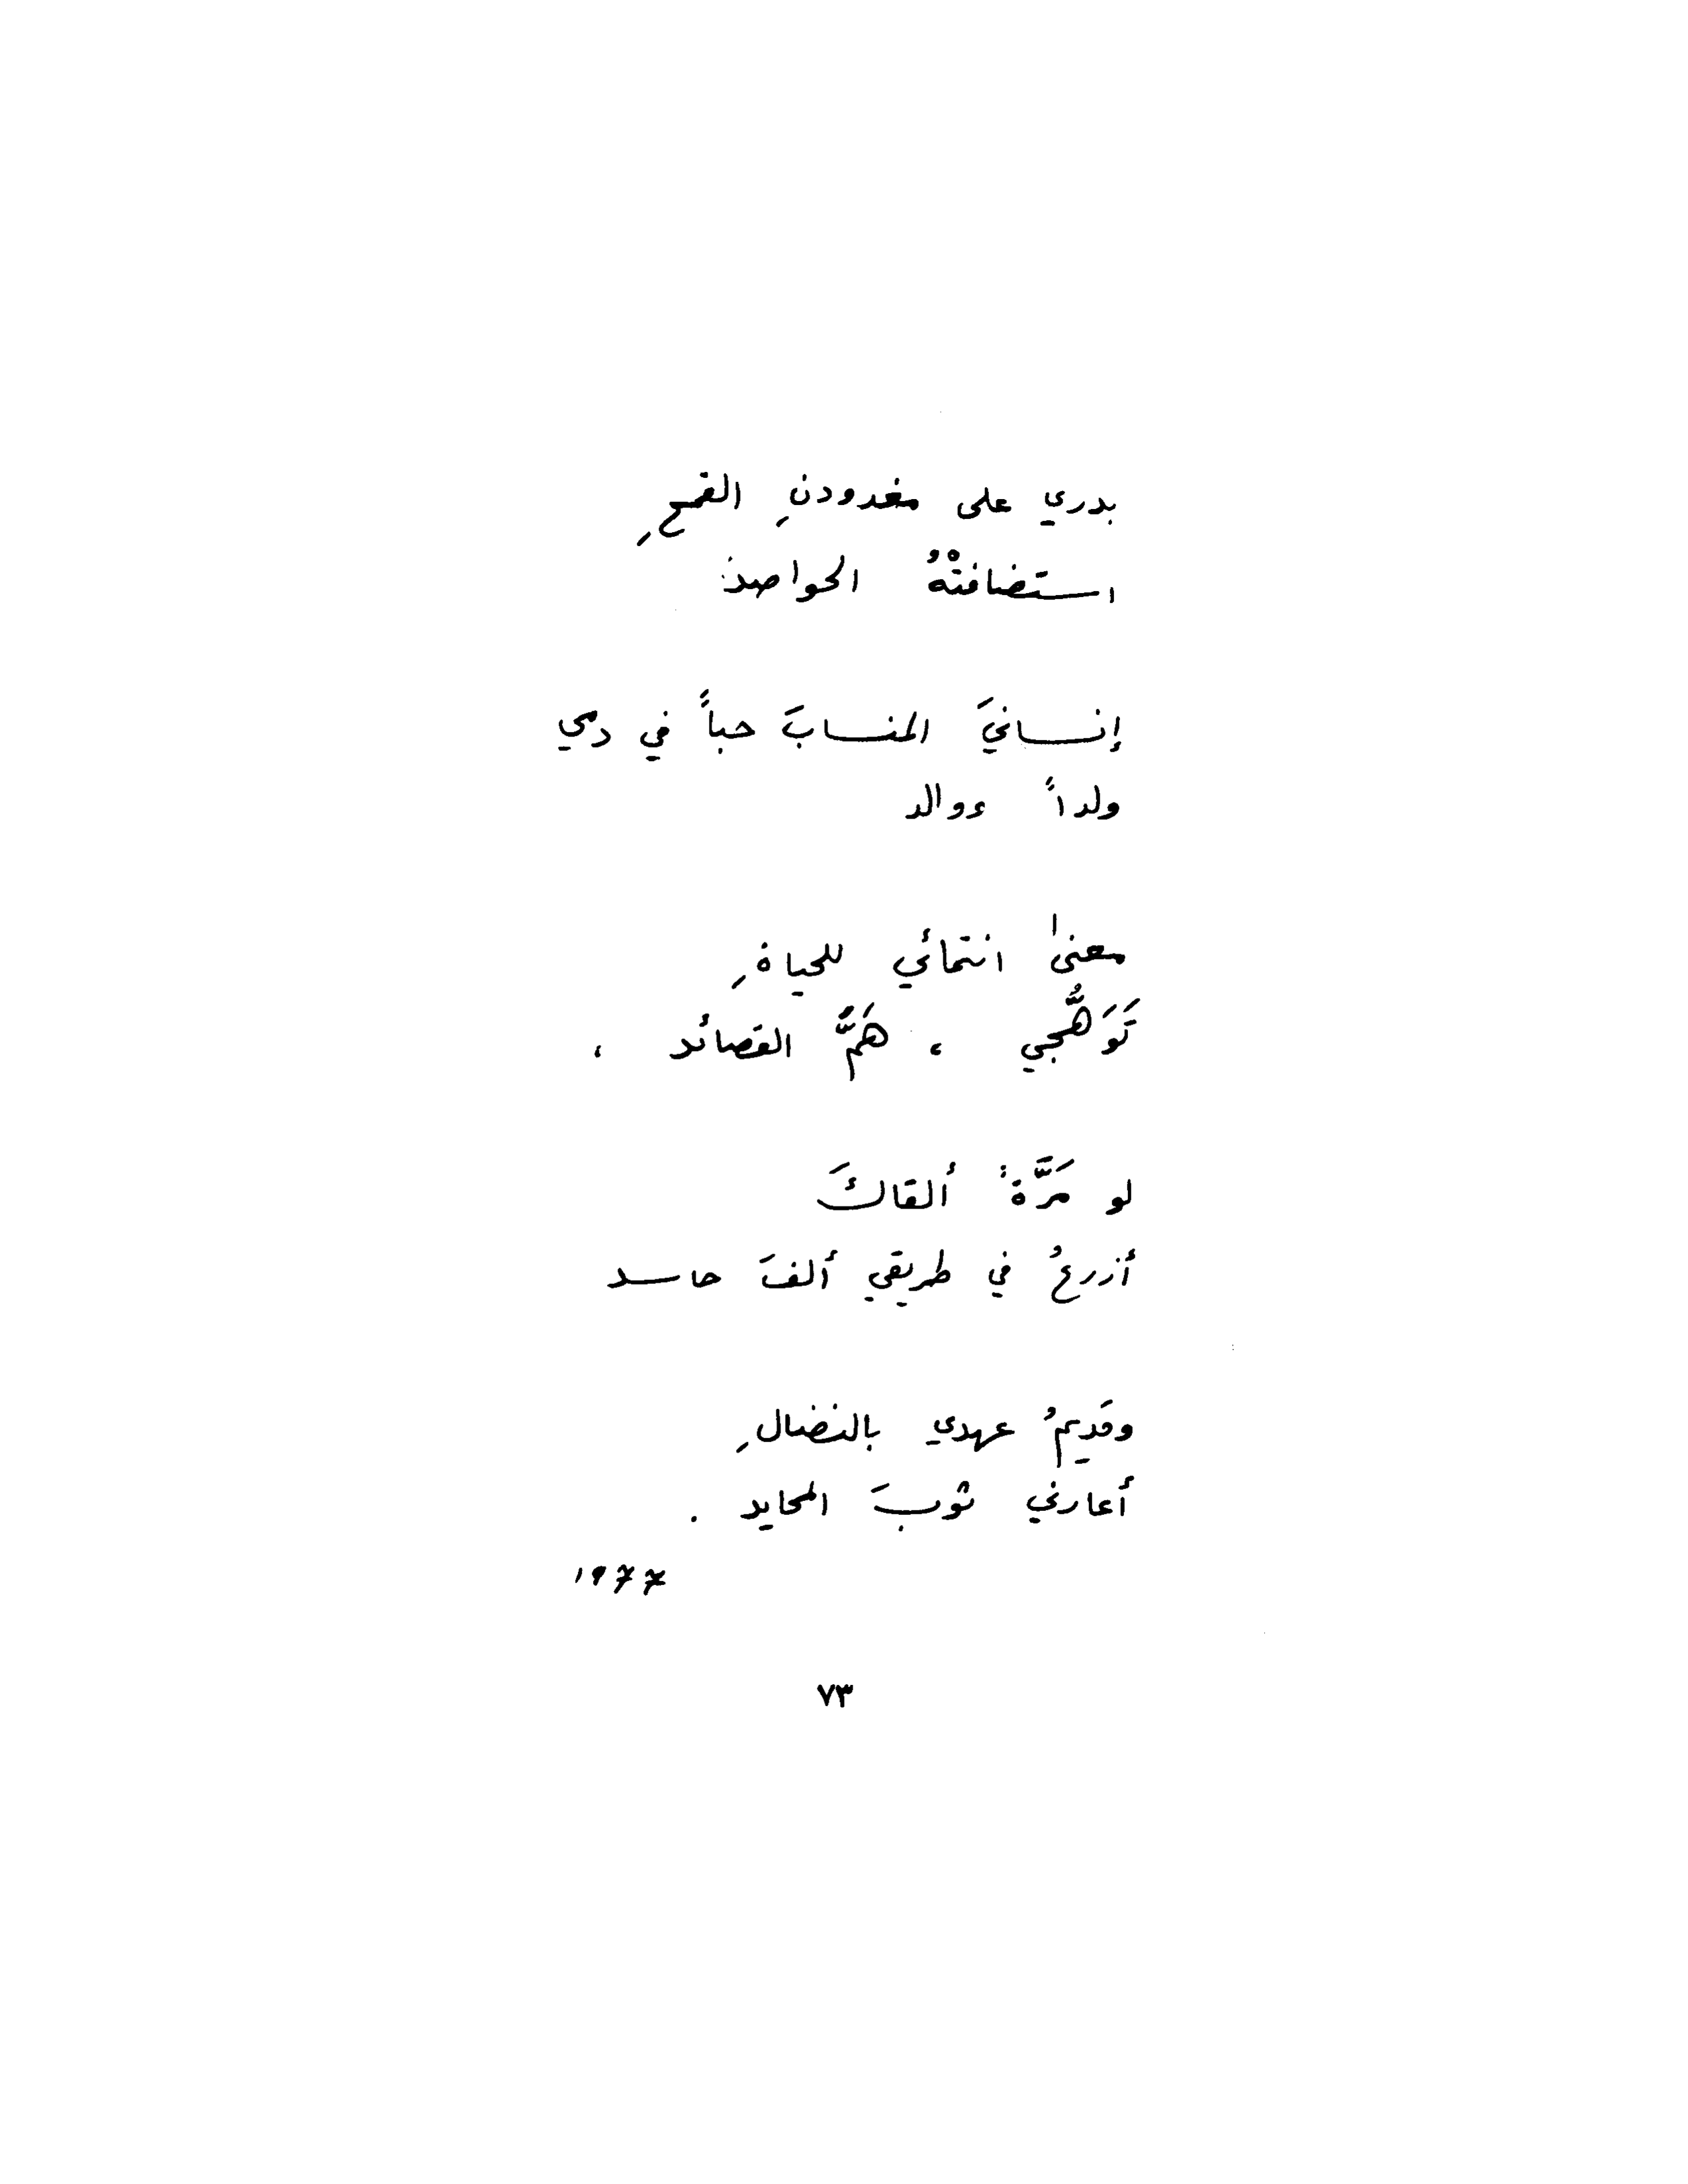 بدري على مغدودنِ القمحِ
استضافتْهُ الحواصد
إنسانيَ المنسابَ حباً في دمي
ولداً ووالد
معنىٰ انتمائي للحياةِ
تَوَهُّجي ، هَمَّ القصائد ،
لو مَرَّةً ألقاكَ
أزرعُ في طريقي ألفَ حاسد
وقَديمُ عهدي بالنضالِ
أعارني ثوبَ المحايد .
1977
٧٣